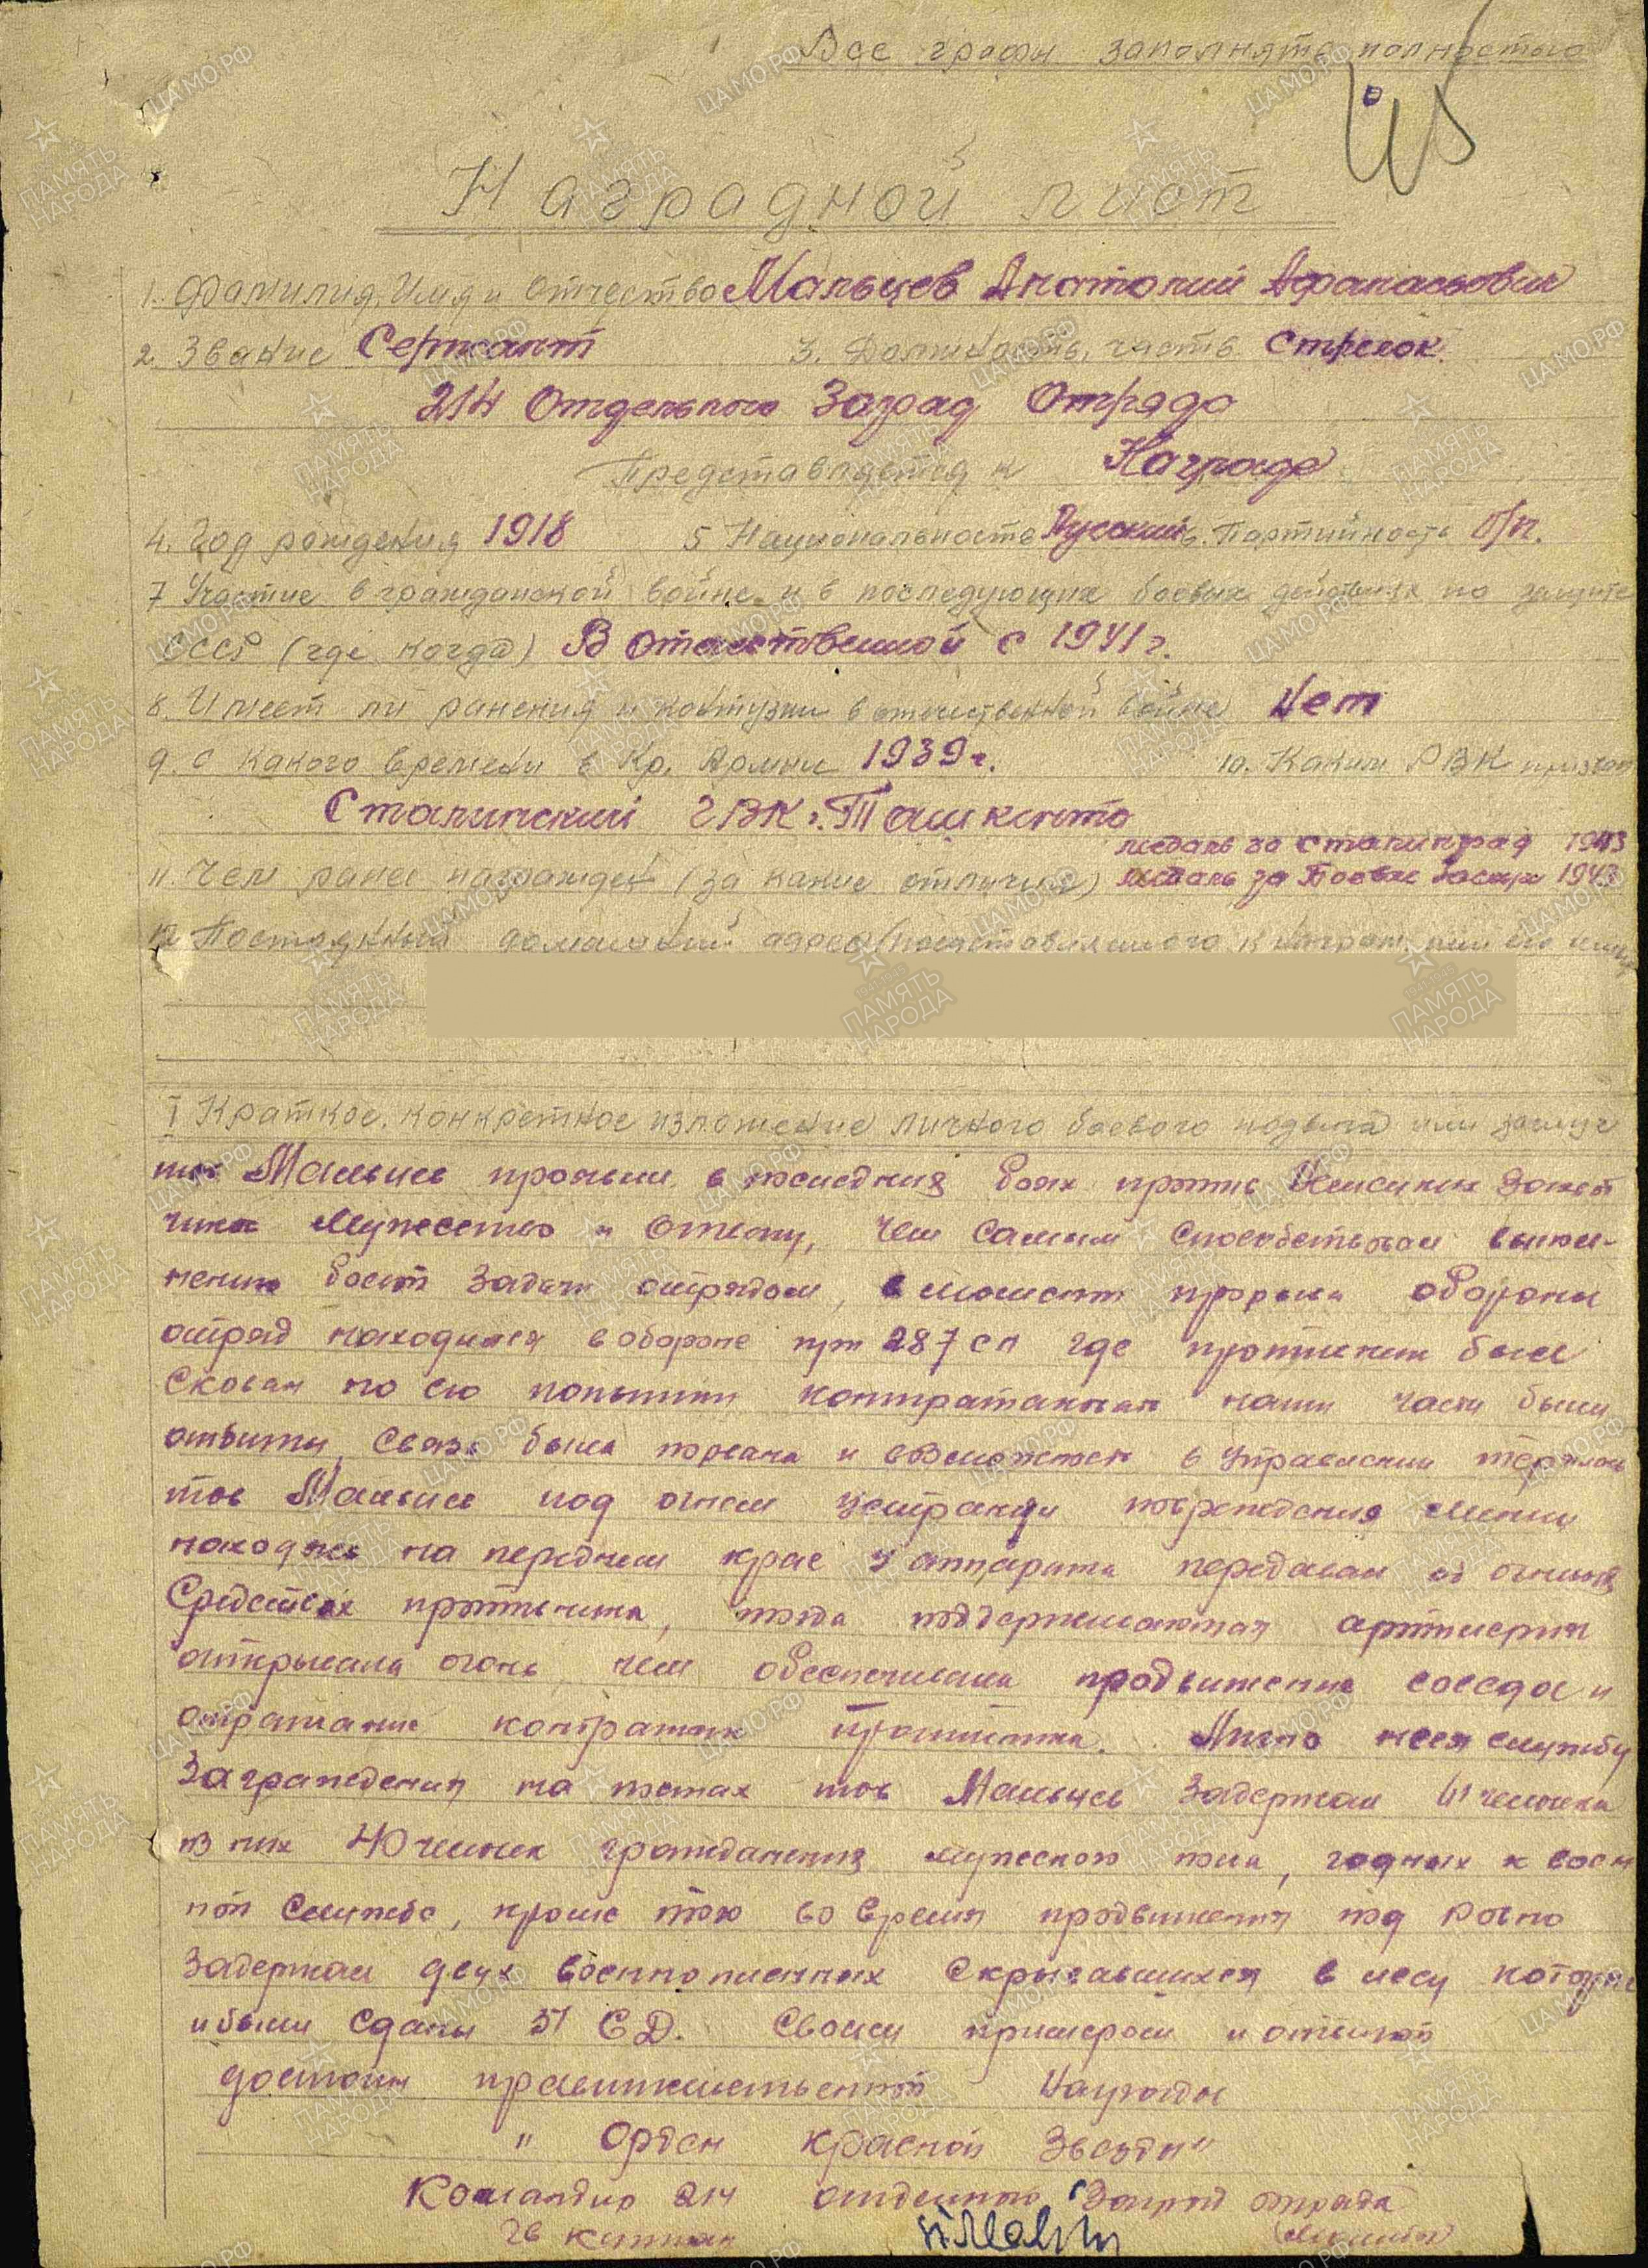 Все графы заполнять полностью
Наградной лист
1. Фамилия, Имя и Отчество Мальцев Анатолий Афанасьович
2. Звание Сержант 3. Должность, часть Стрелок.
214 Отдельного Заград Отряда
Представляется к Награде
4. Год рождения 1918 5 Национальность Русский 6. Партийность б/п.
7 Участие в гражданской войне и в последующих боевых действиях по защите
СССР (где, когда) В Отечественной с 1941 г.
8. Имеет ли ранения и контузии в отечественной войне Нет
9. С какого времени в Кр. Армии 1939 г. 10. Каким РВК призван
Сталинский ГВК г. Ташкента
медаль за Сталинград 1943
11. Чем ранее награжден (за какие отличия) медаль за Боевые заслуги 1943
12 Постоянный домашний адрес представляемого к наград. или его семьи
I Краткое, конкретное изложение личного боевого подвига или заслуг
тов Мальцев проявил в последних боях против Немецких захват
чиков Мужество и Отвагу, чем самым способствовал выпол-
нению боевых задач отрядом, в момент прорыва обороны
отряд находился в обороне при 287 сп где противник был
скован но его попытки контратаковать наши части были
отбиты, связь была порвана и возможность в управлении терялась
тов Мальцев под огнем устранял повреждения линии
находясь на переднем крае у аппарата передавал об огневых
Средствах противника, тогда поддерживающая артилерия
открывала огонь, чем обеспечивала продвижение соседа и
отражание контратак противника. Лично неся службу
Заграждения на постах тов Мальцев задержал 41 человека
из них 40 человек гражданских мужского пола, годных к воен
ной службе, кроме того во время продвижения под Ровно
задержал двух военнопленных скрывавшихся в лесу которые
и были сданы 51 СД. Своим примером и отвагой
достоин правительственной Награды
" Орден Красной Звезды"
Командир 214 отдельного Заград отряда
гв капитан